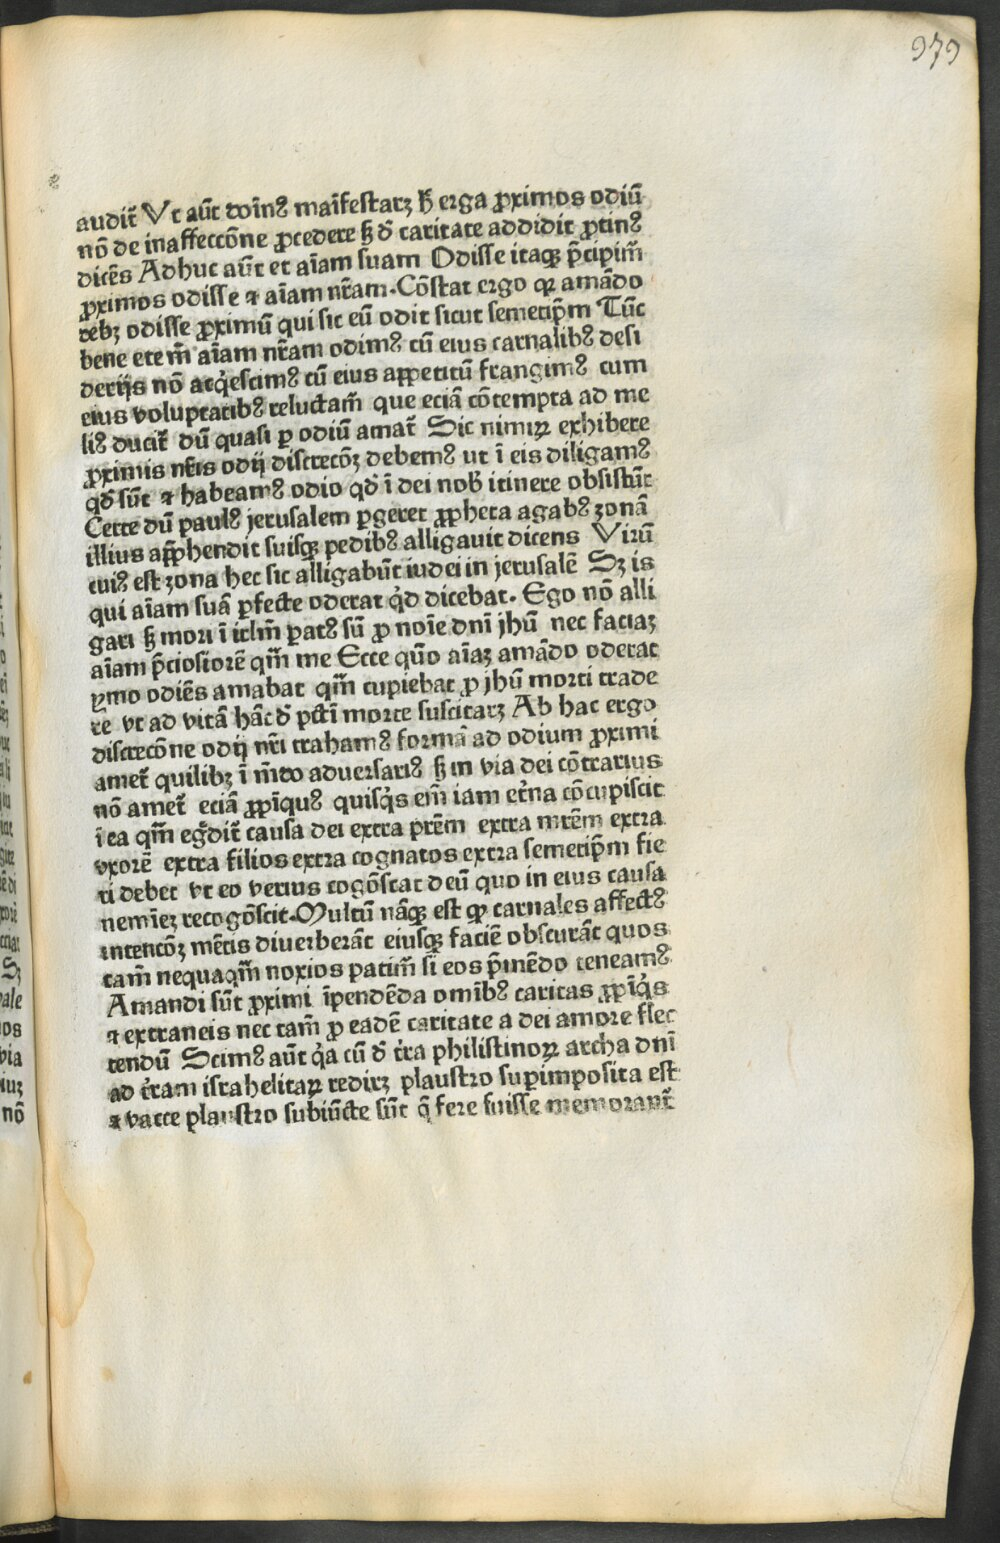 979
audit᷑ Vt aūt dōinꝰ maīfestarꝫ ꝗ erga ꝓximos odiū
nō de inaffeccōne ꝓcedere sꝫ đ caritate addidit ꝓtinꝰ
dicēs Adhuc aūt et aīam suam Odisse itaqꝫ p̄cipim̄
ꝓximos odisse ⁊ aīam nr̄am. Cōstat ergo ꝙ amādo
debꝫ odisse ꝓximū qui sic eū odit sicut semetip̄m Tūc
bene etem̄ aīam nr̄am odimꝰ cū eius carnalibꝰ desi
derijs nō acq̇escimꝰ cū eius appetitū frangimꝰ cum
eius voluptatibꝰ reluctam̄ que eciā cōtempta ad me
liꝰ ducit᷑ dū quasi ꝑ odiū amat᷑ Sic nimiꝝ exhibere
ꝓximis nr̄is odij discrecōꝫ debemꝰ ut ī eis diligamꝰ
qđ sūt ⁊ habeamꝰ odio qđ ī dei nob̄ itinere obsistūt
Certe dū paulꝰ jerusalem ꝑgeret ꝓpheta agabꝰ zonā
illius app̄hendit suisqꝫ pedibꝰ alligavit dicens Virū
cuiꝰ est zona hec sic alligabūt iudei in jerusalē Sꝫ is
qui aīam suā ꝑfecte oderat q̇d dicebat. Ego nō alli
gari sꝫ mori ī irl̄m paratꝰ sū ꝓ noīe dnī jhū nec faciaꝫ
aīam p̄ciosiorē qm̄ me Ecce quō aīaꝫ amādo oderat
ymo odiēs amabat qm̄ cupiebat ꝓ jhū morti trade
re vt ad vitā hāc đ pctī morte suscitarꝫ Ab hac ergo
discrecōne odij nr̄i trahamꝰ formā ad odium ꝓximi
amet᷑ quilibꝫ ī mūdo adversariꝰ sꝫ in via dei cōtrarius
nō amet᷑ eciā ꝓpīquꝰ quisq̇s em̄ iam et̄na cōcupiscit
ī ea qm̄ eg̃dit᷑ causa dei extra prēm extra mrēm extra
vxorē extra filios extra cognatos extra semetip̄m fie
ri debet vt eo verius cognōscat deū quo in eius causa
nemīeꝫ recognōscit. Multū nāqꝫ est ꝙ carnales affectꝰ
intencōꝫ mētis diverberāt eiusqꝫ faciē obscurāt quos
tam̄ nequaqm̄ noxios patim̄ si eos p̄mēdo teneamꝰ
Amandi sūt ꝓximi īpendēda omībꝰ caritas ꝓpīq̇s
⁊ extraneis nec tam̄ ꝓ eadē caritate a dei amore flec
tendū Scimꝰ aūt q̇a cū đ t̄ra philistinoꝝ archa dnī
ad t̄ram israhelitaꝝ redirꝫ plaustro suꝑimposita est
⁊ vacce plaustro subiūcte sūt q̄ fere fuisse memorant᷑